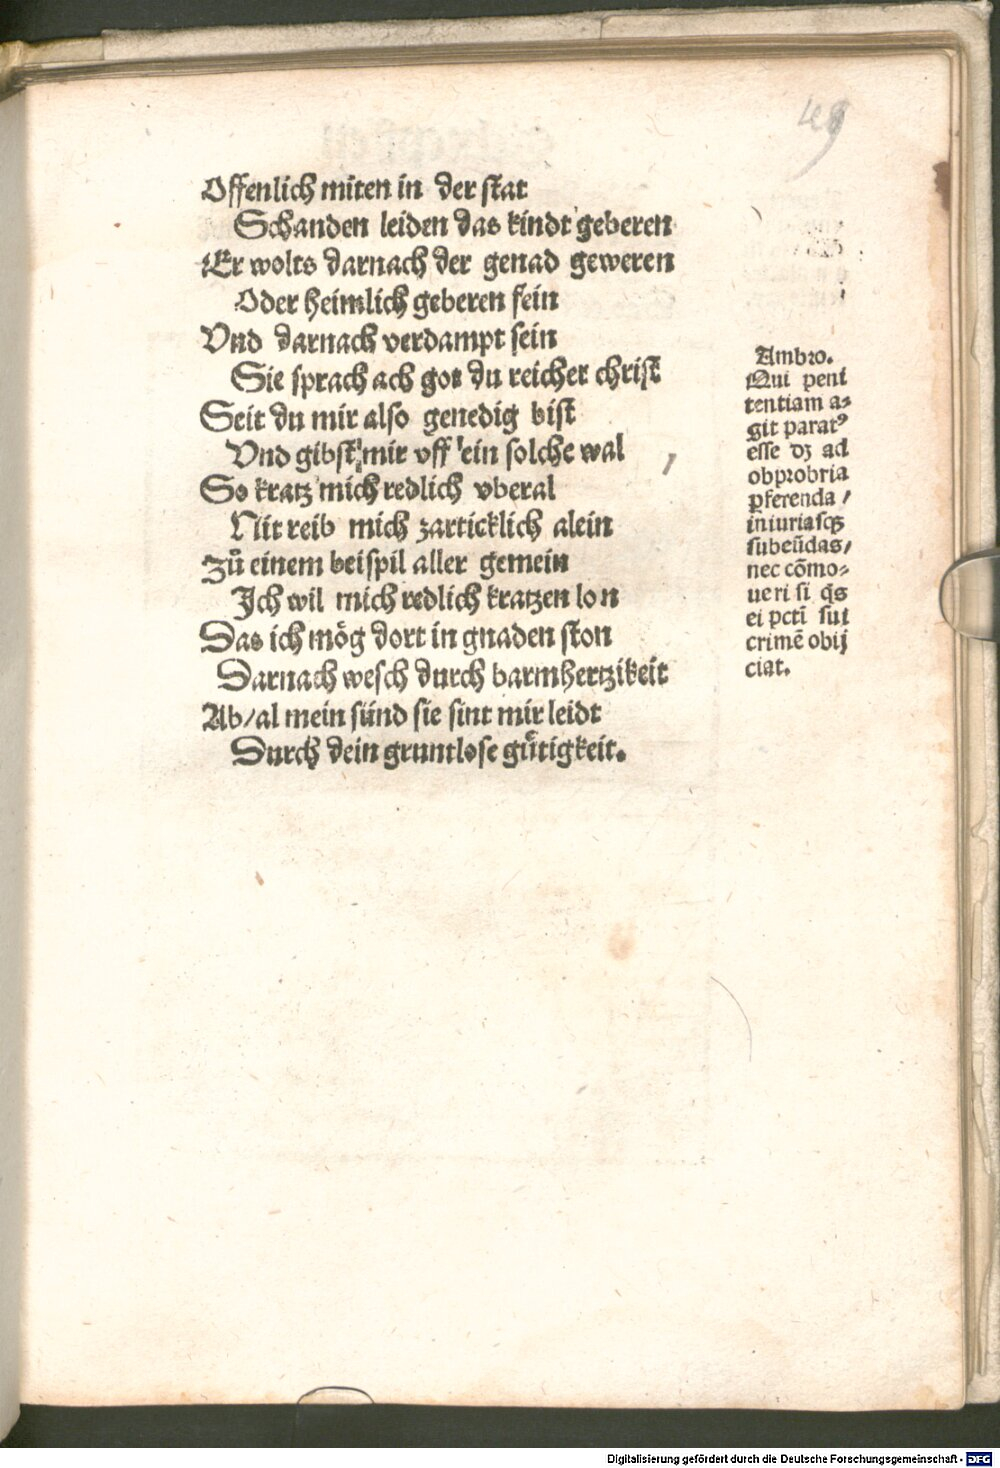 49
Offenlich miten in der stat
Schanden leiden das kindt geberen
Er wolts darnach der genad geweren
Oder heimlich geberen fein
Vnd darnach verdampt sein
Sie sprach ach got du reicher christ
Seit du mir also genedig bist
Vnd gibst mir vff ein solche wal
So kratz mich redlich vberal
Nit reib mich zarticklich alein
Zů einem beispil aller gemein
Ich wil mich redlich kratzen lon
Das ich mög dort in gnaden ston
Darnach wesch durch barmhertzikeit
Ab/al mein sünd sie sint mir leidt
Durch dein gruntlose gůtigkeit.
Ambro.
Qui peni
tentiam a⸗
git paratꝰ
esse dꝫ ad
obprobria
ꝑferenda /
iniuriasqꝫ
subeūdas/
nec cōmo⸗
ueri si q̄s
ei pctī sui
crimē obij
ciat.
Digitalisierung gefördert durch die Deutsche Forschungsgemeinschaft - DFG